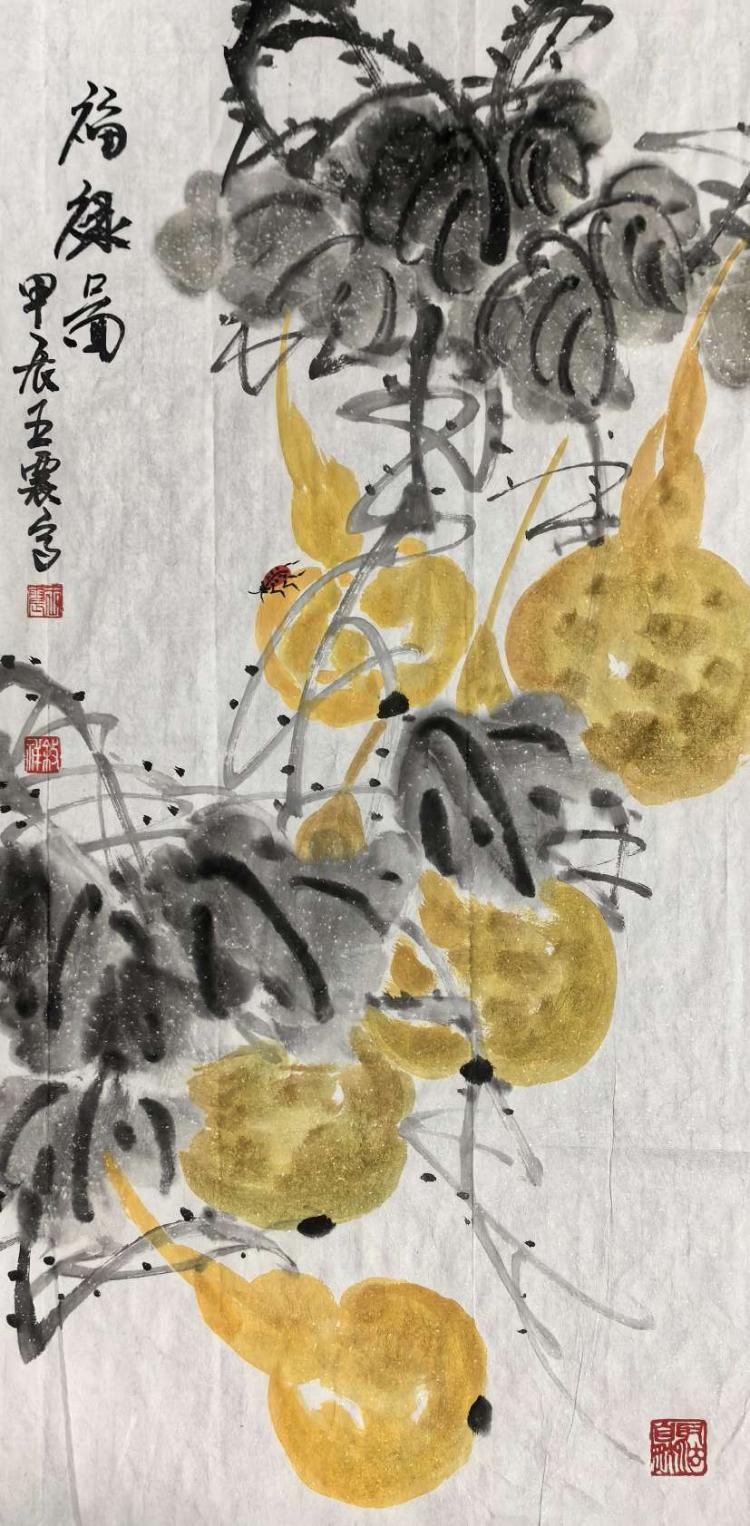 福禄图
甲辰王震写